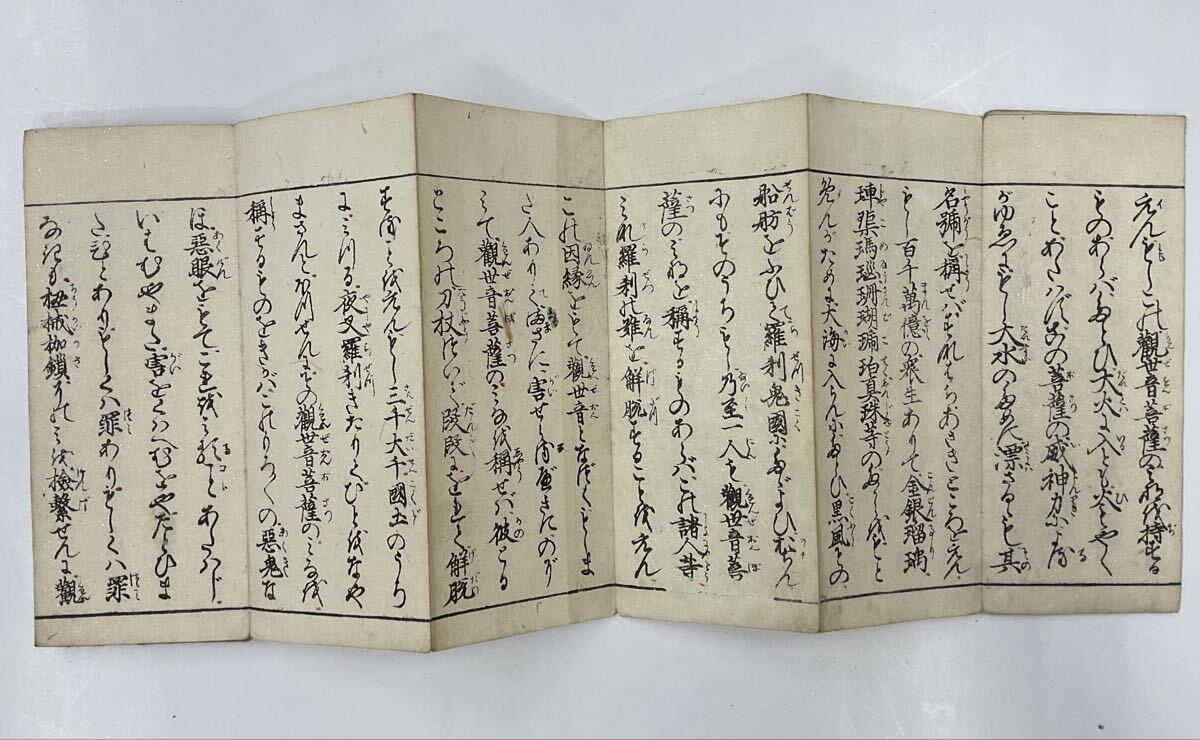 えんもしこれ觀世音菩薩のみ名を持する
ものあらバたとひ大火に入とも火もやく
ことあたハずこの菩薩の威神力による
がゆゑにもし大水のために漂さるゝも其
名號を稱せバすなハちあさきところをえん
もし百千萬億の衆生ありて金銀瑠璃
硨磲瑪瑙珊瑚琥珀真珠等のたからをもと
めんがために大海に入らんにたとひ黒風その
船舫をふひて羅刹鬼國にたゞよひおちん
にもそのうちもし乃至一人も觀世音菩
薩のみ名を稱するものあらバこれ諸人等
みな羅刹の難を解脱することをえん
この因縁をもて觀世音となづくもしま
た人ありてまさに害せらるべきにのぞ
みて觀世音菩薩のみ名を稱せバ彼とる
ところの刀杖ついで段段にをれて解脱
することをえんもし三千大千國土のうち
にみつる夜叉羅刹きたりてひとをなや
まさんとほつせんにその觀世音菩薩のみ名を
稱するものをきかバこれもろ〱の惡鬼な
ほ惡眼をもてこれを視ことあたハじ
いはむやまた害をくハへむをやたとひま
たひとありもしくハ罪ありもしくハ罪
なきも杻械枷鎖その身を檢繫せんに觀